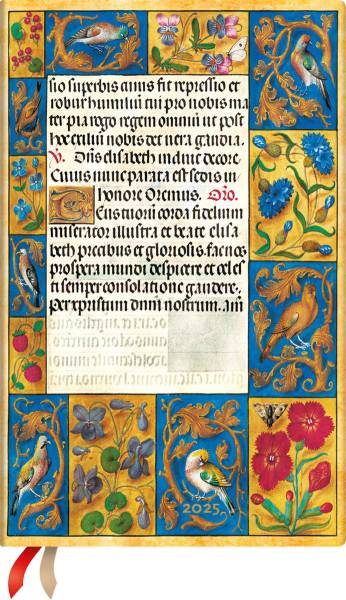 sio superbis cuius fit repressio et
robur humiliū cui pro nobis ma
ter pia rogo regem omniū ut post
hoc exiliū nobis det vera gaudia.
V. Dñs elisabeth induit decore.
Cuius nunc parata est sedis in
honore Oremus. Oro.
Tuorū corda fidelium
miserator illustra et beate elisa
beth precibus et gloriosis, fac nos
prospera mundi despicere et celes
ti semper consolatione gaudere.
per xpristum dnm nostrum. am
2025